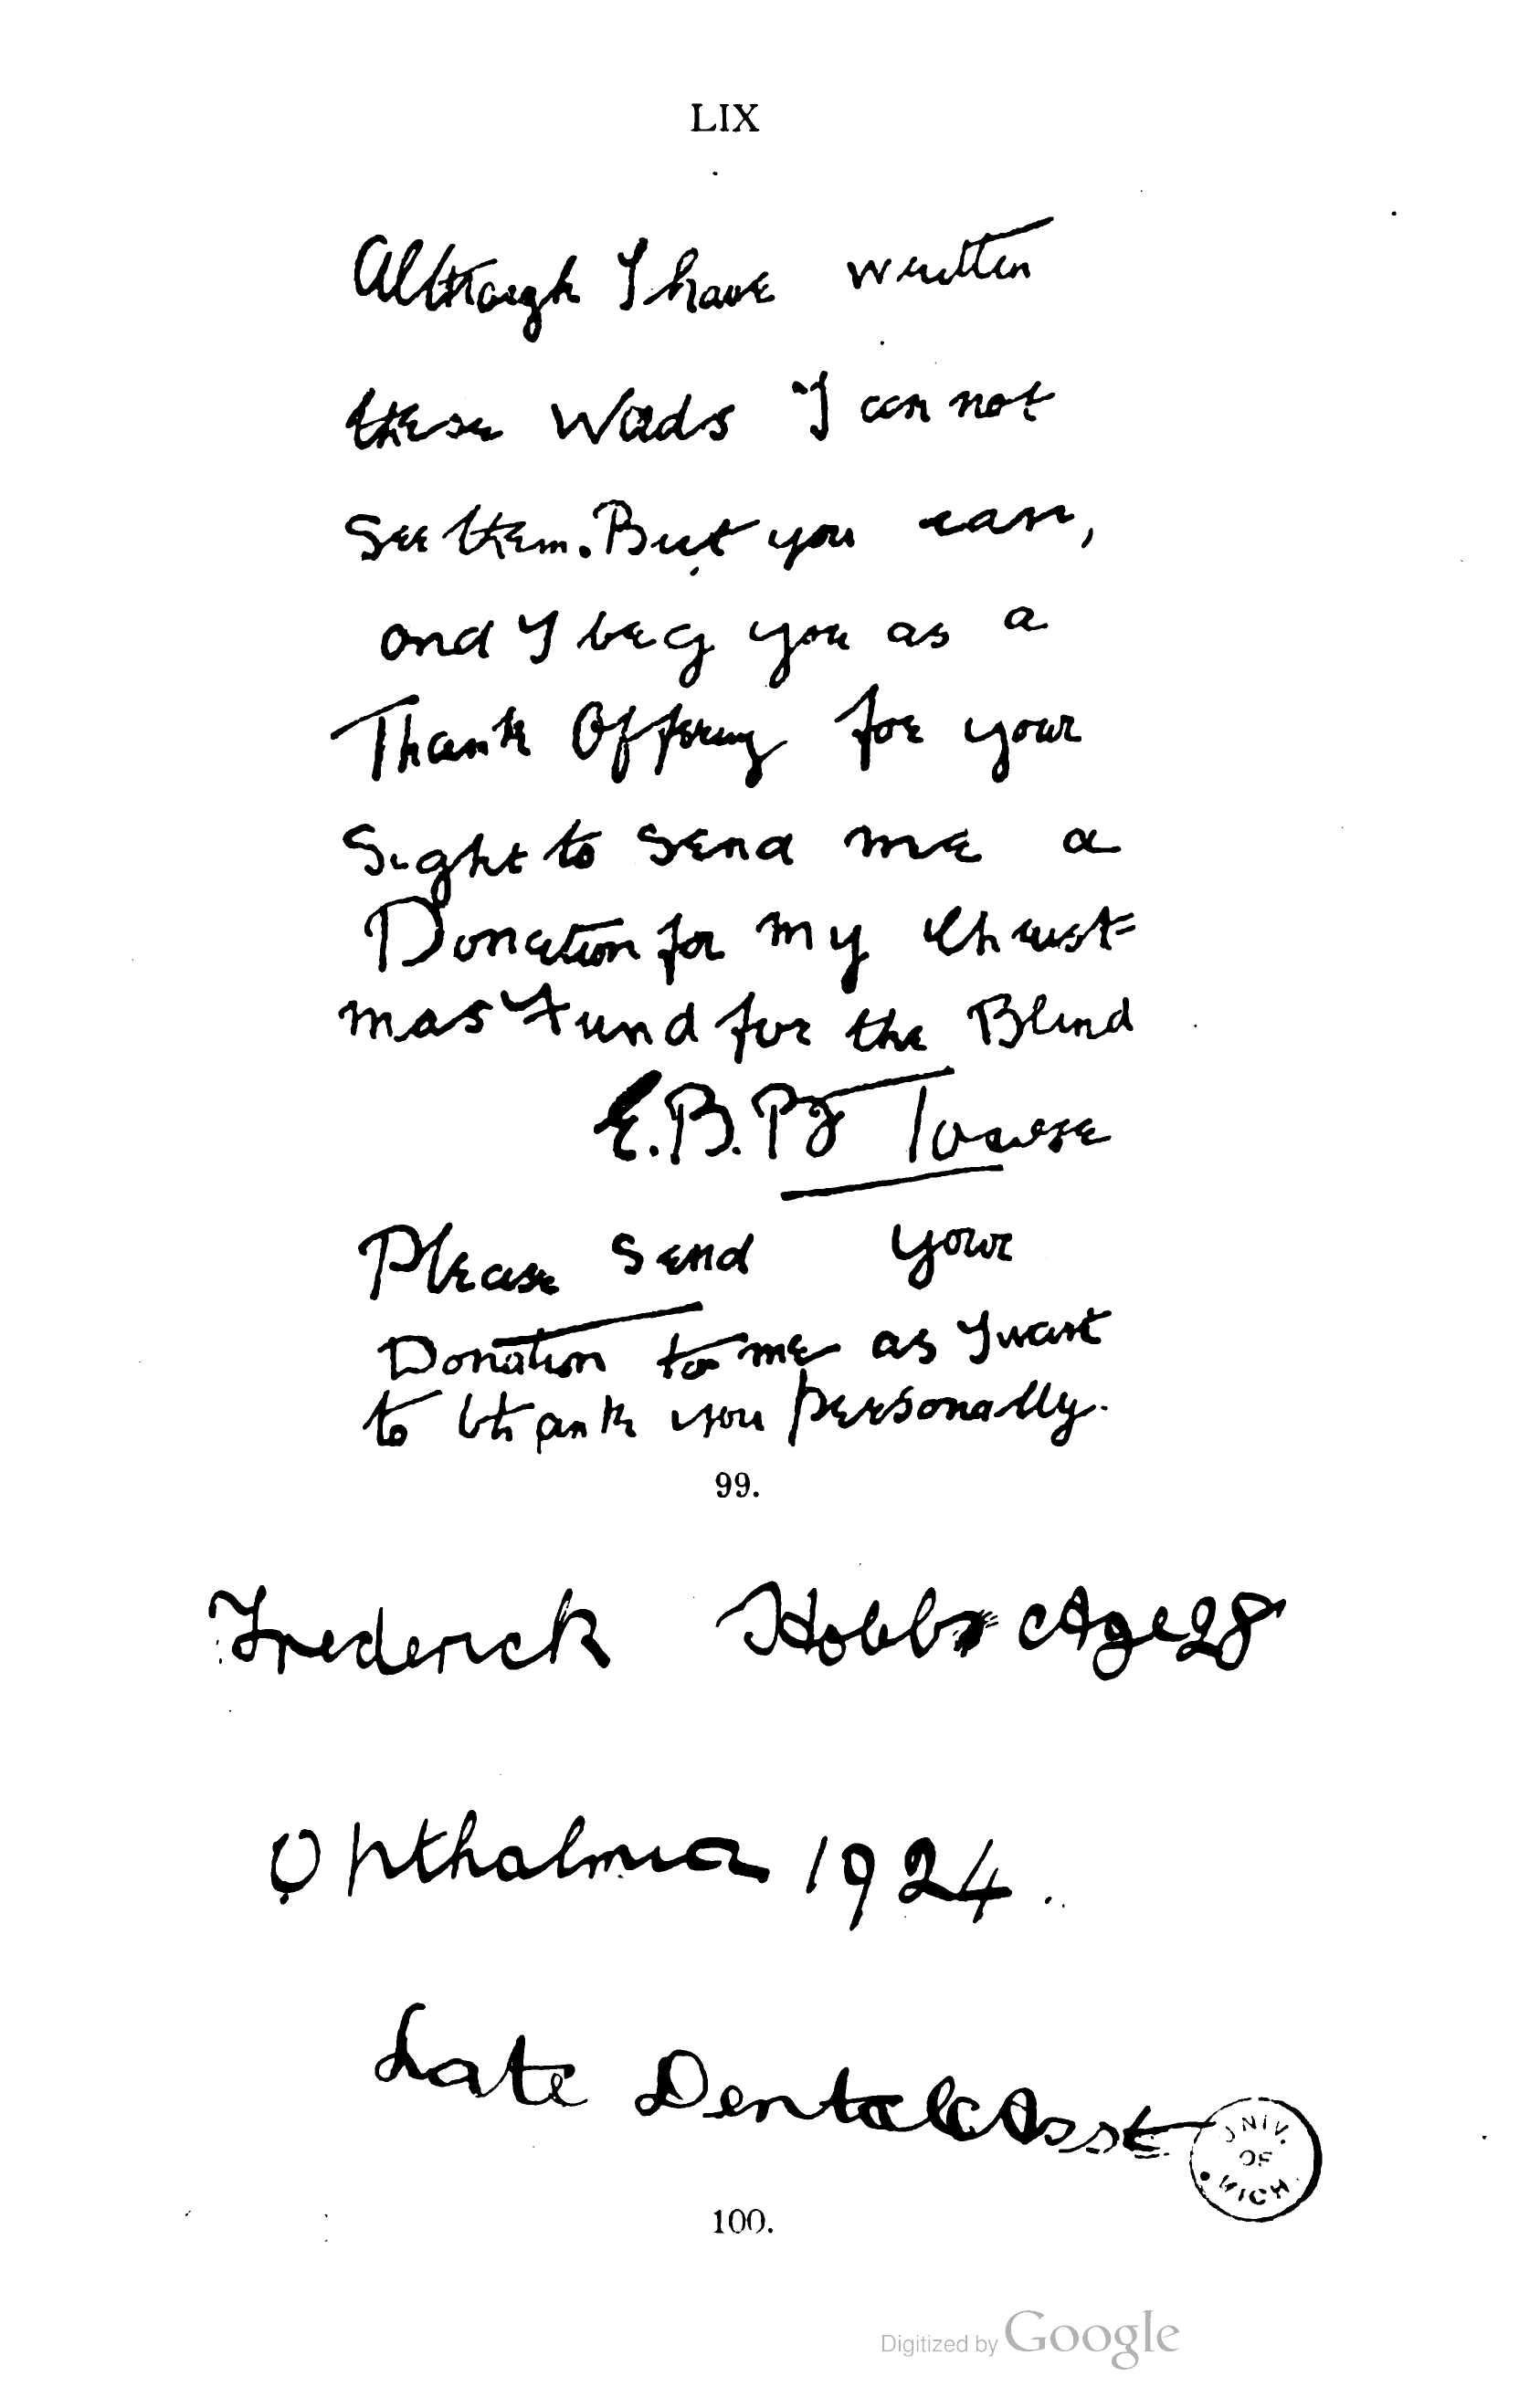 LIX
Although I have written
these Words I can not
See them. But you can,
and I beg you as a
Thank Offering for your
Sight to Send me a
Donation for my Christ=
mas Fund for the Blind
E.B.P. Towse
Please Send your
Donation to me as I want
to thank you personally.
99.
Frederick Hobbs Age 28
Ophthalmia 1924.
Late Dental Asst
UNIV.
OF
MICH.
100.
Digitized by Google